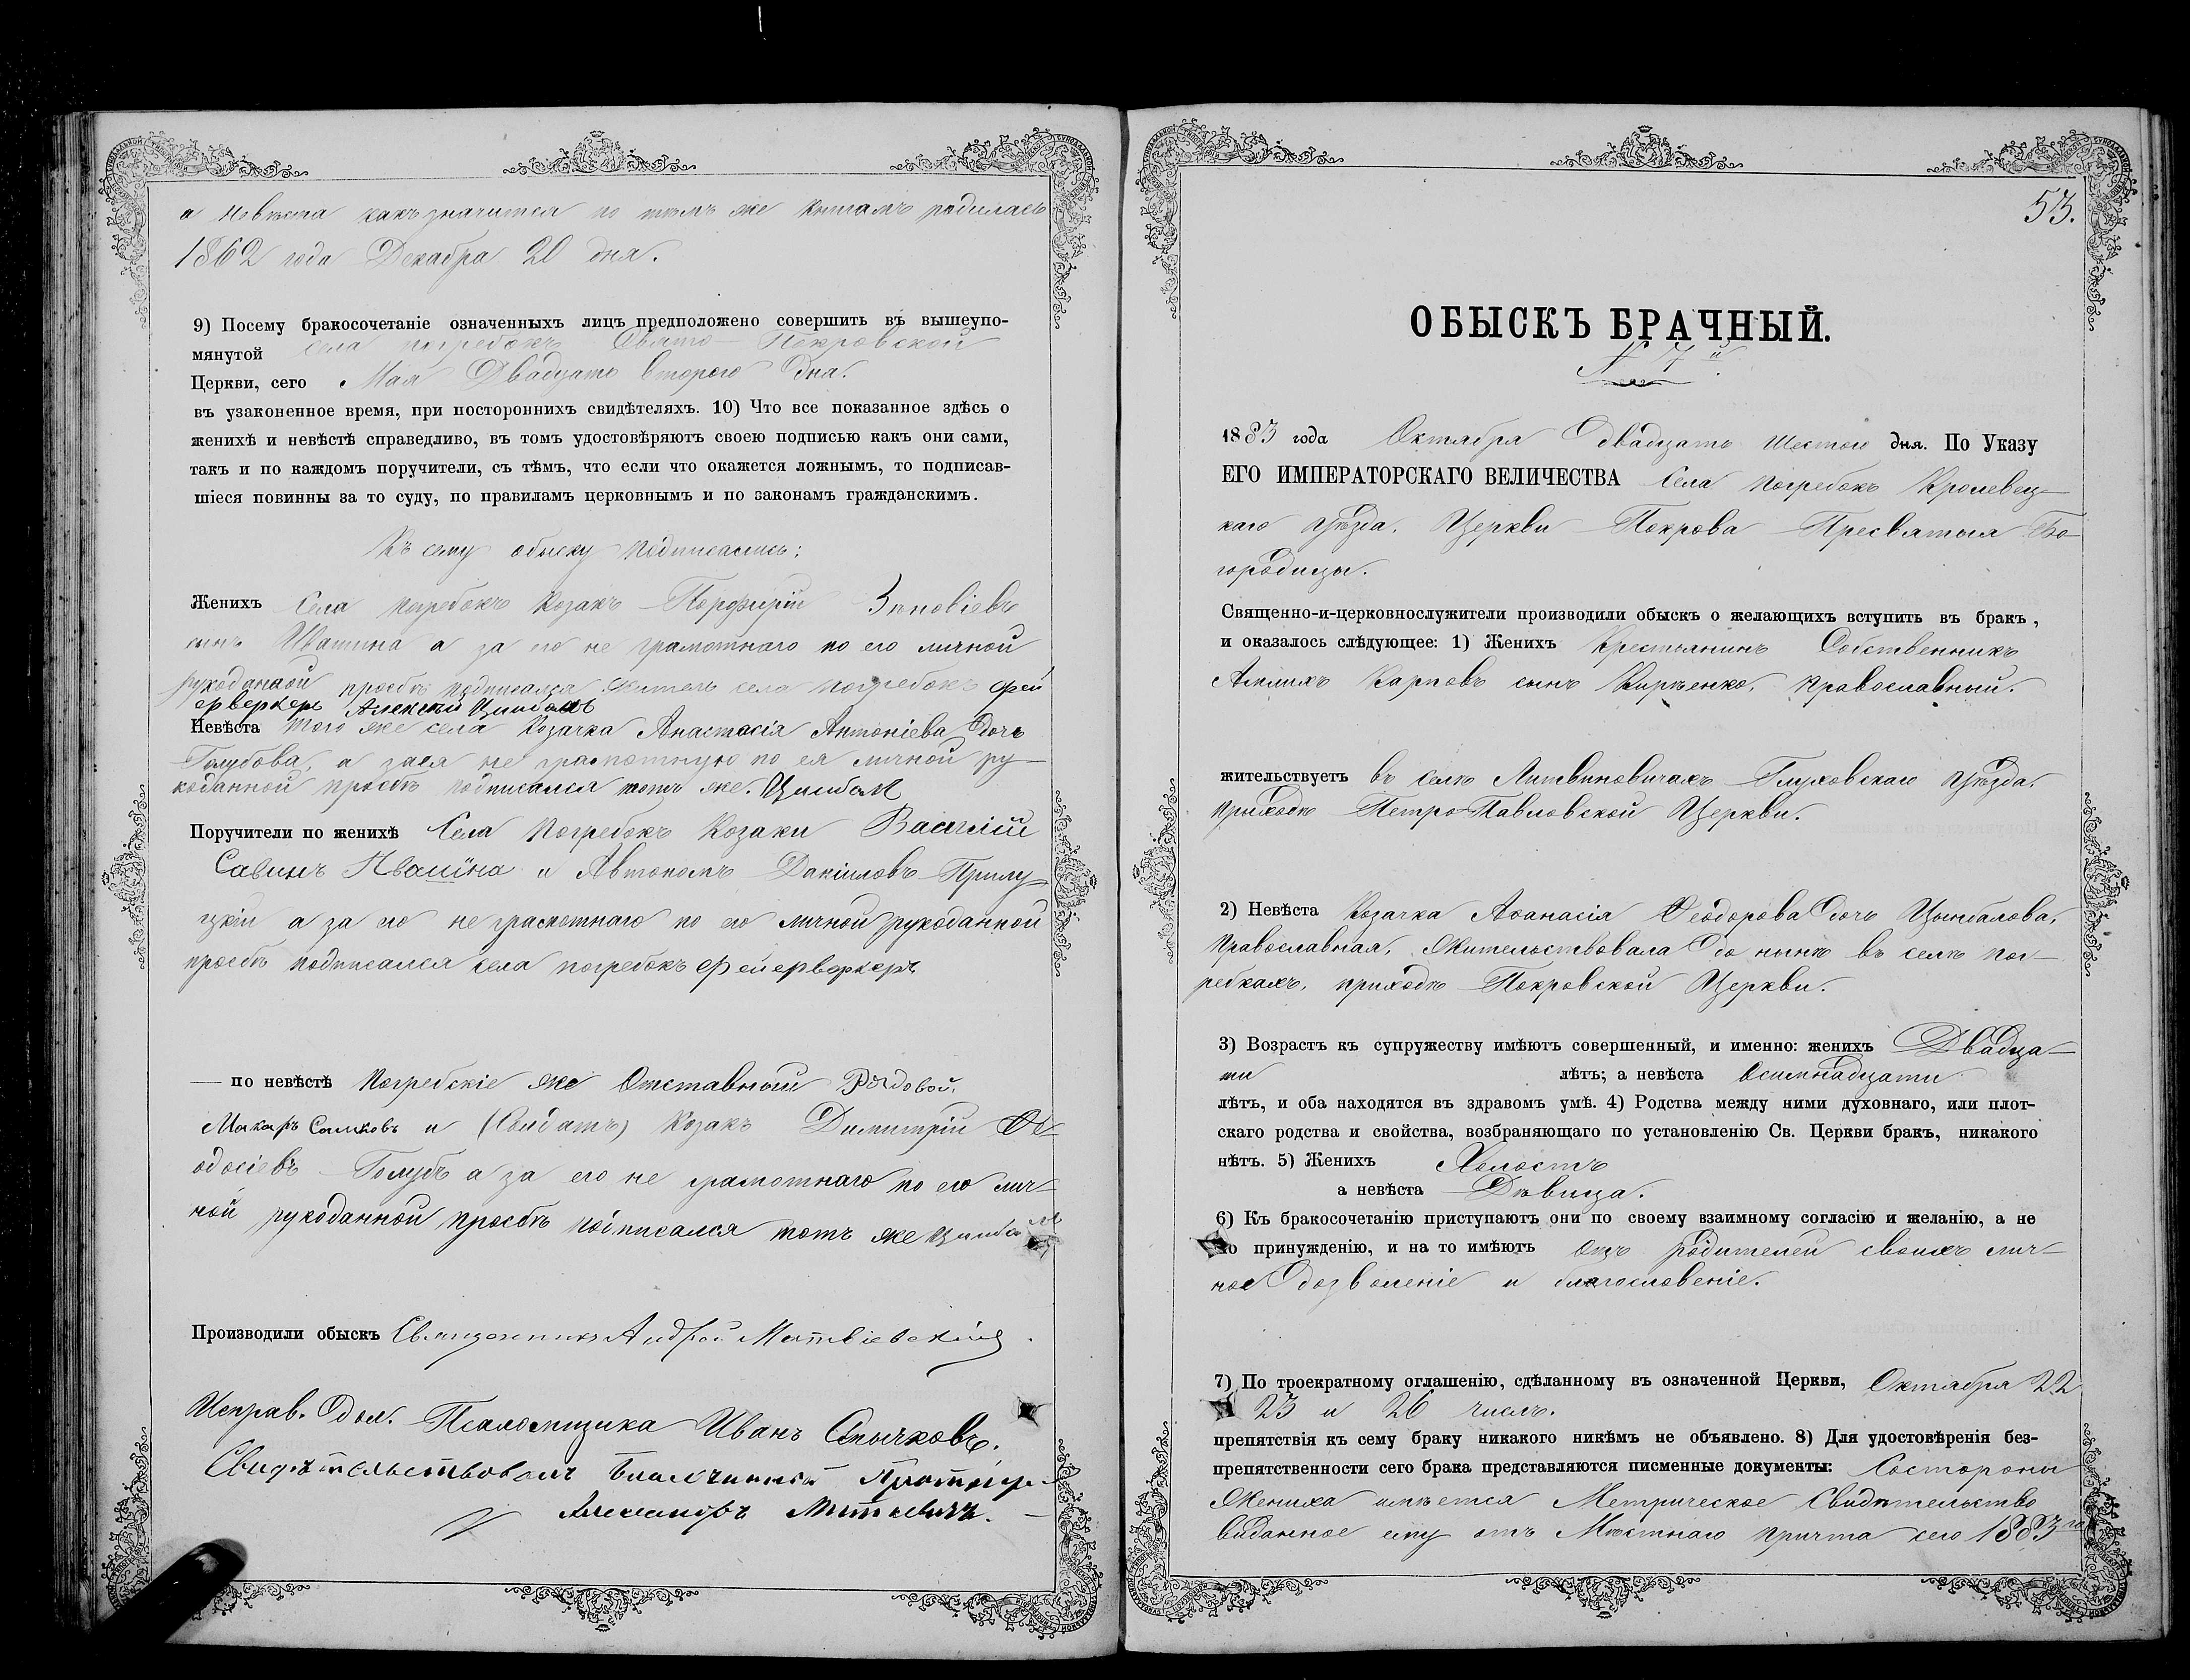 а невѣста какъ значится по тѣмъ же книгамъ родилась
1862 года Декабря 20 дня.
9) Посему бракосочетаніе означенныхъ лицъ предположено совершить въ вышеупо-
мянутой села Погребокъ Свято-Покровской
Церкви, сего Мая Двадцать второго дня.
въ узаконенное время, при постороннихъ свидѣтеляхъ. 10) Что все показанное здѣсь о
женихѣ и невѣстѣ справедливо, въ томъ удостовѣряютъ своею подписью какъ они сами,
такъ и по каждомъ поручители, съ тѣмъ, что если что окажется ложнымъ, то подписав-
шіеся повинны за то суду, по правиламъ церковнымъ и по законамъ гражданскимъ.
Къ сему обыску подписались:
Женихъ Села Погребокъ Козакъ Порфирій Зиновіевъ
сынъ Ивашина а за его не грамотнаго по его личной
рукоданной просьбѣ подписался житель села Погребокъ фей
ерверкеръ Алексѣй Цимбалъ
Невѣста того же села Козачка Анастасія Антоніева дочь
Голубова, а зася не грамотную по ея личной ру-
коданной просьбѣ подписался тотъ же. Цимбалъ
Поручители по женихѣ Села Погребокъ Козаки Василій
Савинъ Ивашина и Автономъ Даніиловъ Прилу-
цкій а за его не грамотнаго по его личной рукоданной
просьбѣ подписался села погребокъ фейерверкеръ
— по невѣстѣ Погребскіе же Отставной Рядовой
Макаръ и (Солдатъ) Козакъ Димитрій Ѳе-
одосіевъ Голубъ а за его не грамотнаго по его лич-
ной рукоданной просьбѣ подписался тотъ же Цимбалъ
Производили обыскъ Священникъ Андрей Матвіевскій
Исправ. дол. Псаломщика Иванъ Смычковъ.
Свидѣтельствовалъ Благочинный Протоіер.
Александръ
53.
ОБЫСКЪ БРАЧНЫЙ.
№ 7й.
1883 года Октября двадцать шестого дня. По Указу
ЕГО ИМПЕРАТОРСКАГО ВЕЛИЧЕСТВА Села Погребокъ Кролевец-
каго уѣзда. Церкви Покрова Пресвятыя Бо-
городицы.
Священно-и-церковнослужители производили обыскъ о желающихъ вступить въ бракъ,
и оказалось слѣдующее: 1) Женихъ Крестьянинъ Собственникъ
Карповъ сынъ Кирѣенко, православный.
жительствуетъ въ селѣ Литвиновичахъ Глуховскаго уѣзда,
приходѣ Петро-Павловской Церкви.
2) Невѣста Козачка Аѳанасія Ѳеодорова дочь Цымбалова,
Православная, жительствовала до нынѣ въ селѣ пог-
ребкахъ, приходѣ Покровской Церкви.
3) Возрастъ къ супружеству имѣютъ совершенный, и именно: женихъ Двадца-
ти лѣтъ; а невѣста осимнадцати
лѣтъ, и оба находятся въ здравомъ умѣ. 4) Родства между ними духовнаго, или плот-
скаго родства и свойства, возбраняющаго по установленію Св. Церкви бракъ, никакого
нѣтъ. 5) Женихъ Холостъ
а невѣста Дѣвица.
6) Къ бракосочетанію приступаютъ они по своему взаимному согласію и желанію, а не
по принужденію, и на то имѣютъ отъ родителей своихъ лич-
ное дозволеніе и благословеніе.
7) По троекратному оглашенію, сдѣланному въ означенной Церкви, Октября 22
23 и 26 числъ.
препятствія къ сему браку никакого никѣмъ не объявлено. 8) Для удостовѣренія без-
препятственности сего брака представляются писменные документы: Состороны
Жениха имѣется Метрическое Свидѣтельство
виданное ему отъ Мѣстнаго причта сего 1883го